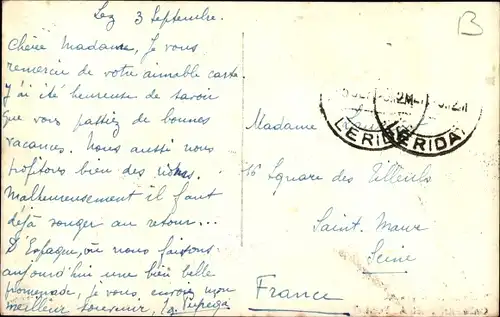 Lez 3 Septembre.
Chère Madame, Je vous
remercie de votre aimable carte.
J'ai été heureuse de savoir
que vous passiez de bonnes
vacances. Nous aussi nous
profitons bien des nôtres.
Malheureusement il faut
déjà songer au retour...
D'Espagne, où nous faisons
aujourd'hui une bien belle
promenade, je vous envoie mon
meilleur souvenir,
B
LERIDA
LERIDA
Madame
16 Square des Tilleuls
Saint. Maur
Seine
France